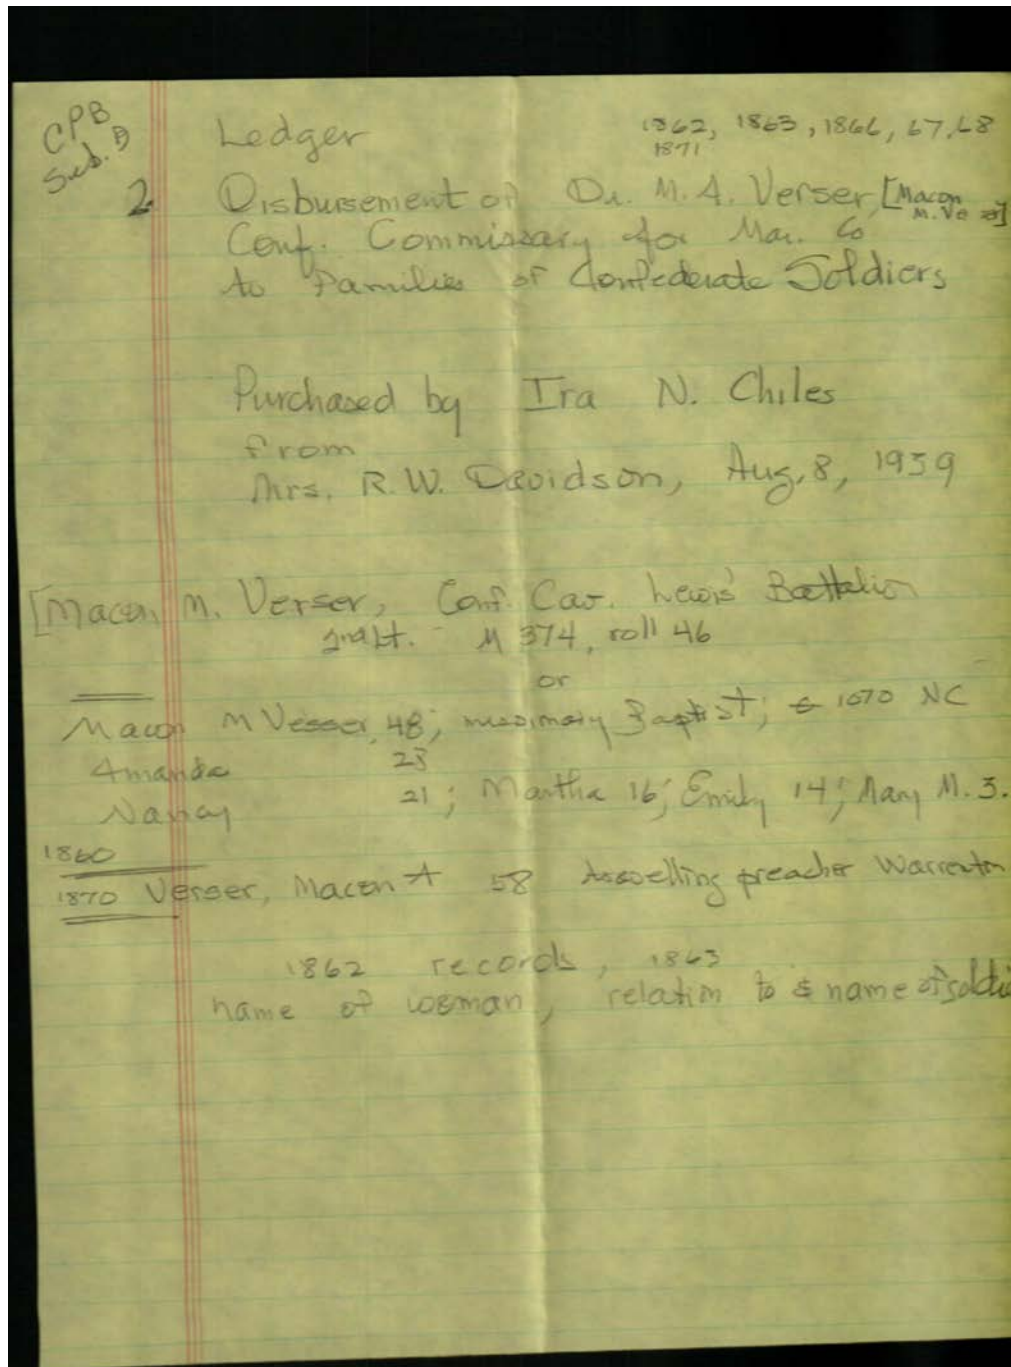 CPB
Sub. B
2
Ledger 1862, 1863, 1866, 67, 68
1871
Disbursement of Dr. M. A. Verser [Macon
Conf. Commissary for Mar. Co
to Families of Confederate Soldiers
Purchased by Ira N. Chiles
from
Mrs. R.W. Davidson, Aug, 8, 1959
[Macon M. Verser, Conf. Cav. Lewis' Battalion
2nd Lt. - M 374, roll 46
or
Macon M Vesser, 48; missionary Baptist; NC
Amanda 28
Nancy 21; Martha 16; Emily 14; Mary M. 3.
1860
1870 Verser, Macon A 58 travelling preacher Warrenton
1862 records, 1863
name of woman, relation to & name of